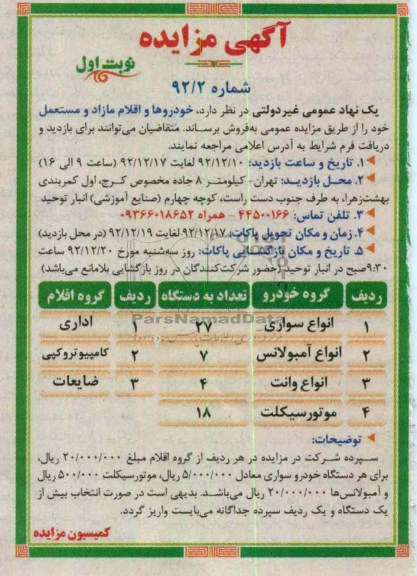 آگهی مزایده
نوبت اول
شماره ۹۲/۲
یک نهاد عمومی غیردولتی در نظر دارد، خودروها و اقلام مازاد و مستعمل
خود را از طریق مزایده عمومی به‌فروش برساند. متقاضیان می‌توانند برای بازدید و
دریافت فرم شرایط به آدرس اعلامی مراجعه نمایند.
۱. تاریخ و ساعت بازدید: ۹۲/۱۲/۱۰ لغایت ۹۲/۱۲/۱۷ (ساعت ۹ الی ۱۶)
۲. محل بازدید: تهران- کیلومتر ۸ جاده مخصوص کرج، اول کمربندی
بهشت‌زهرا، به طرف جنوب دست راست، کوچه چهارم (صنایع آموزشی) انبار توحید
۳. تلفن تماس: ۴۴۵۰۰۱۶۶ - همراه ۰۹۳۶۶۰۱۸۶۵۲
۴. زمان و مکان تحویل پاکات: ۹۲/۱۲/۱۷ لغایت ۹۲/۱۲/۱۹ (در محل بازدید)
۵. تاریخ و مکان بازگشایی پاکات: روز سه‌شنبه مورخ ۹۲/۱۲/۲۰ ساعت
۹:۳۰صبح در انبار توحید (حضور شرکت‌کنندگان در روز بازگشایی بلامانع می‌باشد)
ردیف گروه خودرو تعداد به دستگاه ردیف گروه اقلام
۱ انواع سواری ۲۷ ۱ اداری
ParsNamadData
۲ انواع آمبولانس ۷ ۲ کامپیوتروکپی
۳ انواع وانت ۴ ۳ ضایعات
۴ موتورسیکلت ۱۸
توضیحات:
سپرده شرکت در مزایده در هر ردیف از گروه اقلام مبلغ ۲۰/۰۰۰/۰۰۰ ریال،
برای هر دستگاه خودرو سواری معادل ۵/۰۰۰/۰۰۰ ریال، موتورسیکلت ۵۰۰/۰۰۰ ریال
و آمبولانس‌ها ۲۰/۰۰۰/۰۰۰ ریال می‌باشد. بدیهی است در صورت انتخاب بیش از
یک دستگاه و یک ردیف سپرده جداگانه می‌بایست واریز گردد.
کمیسیون مزایده